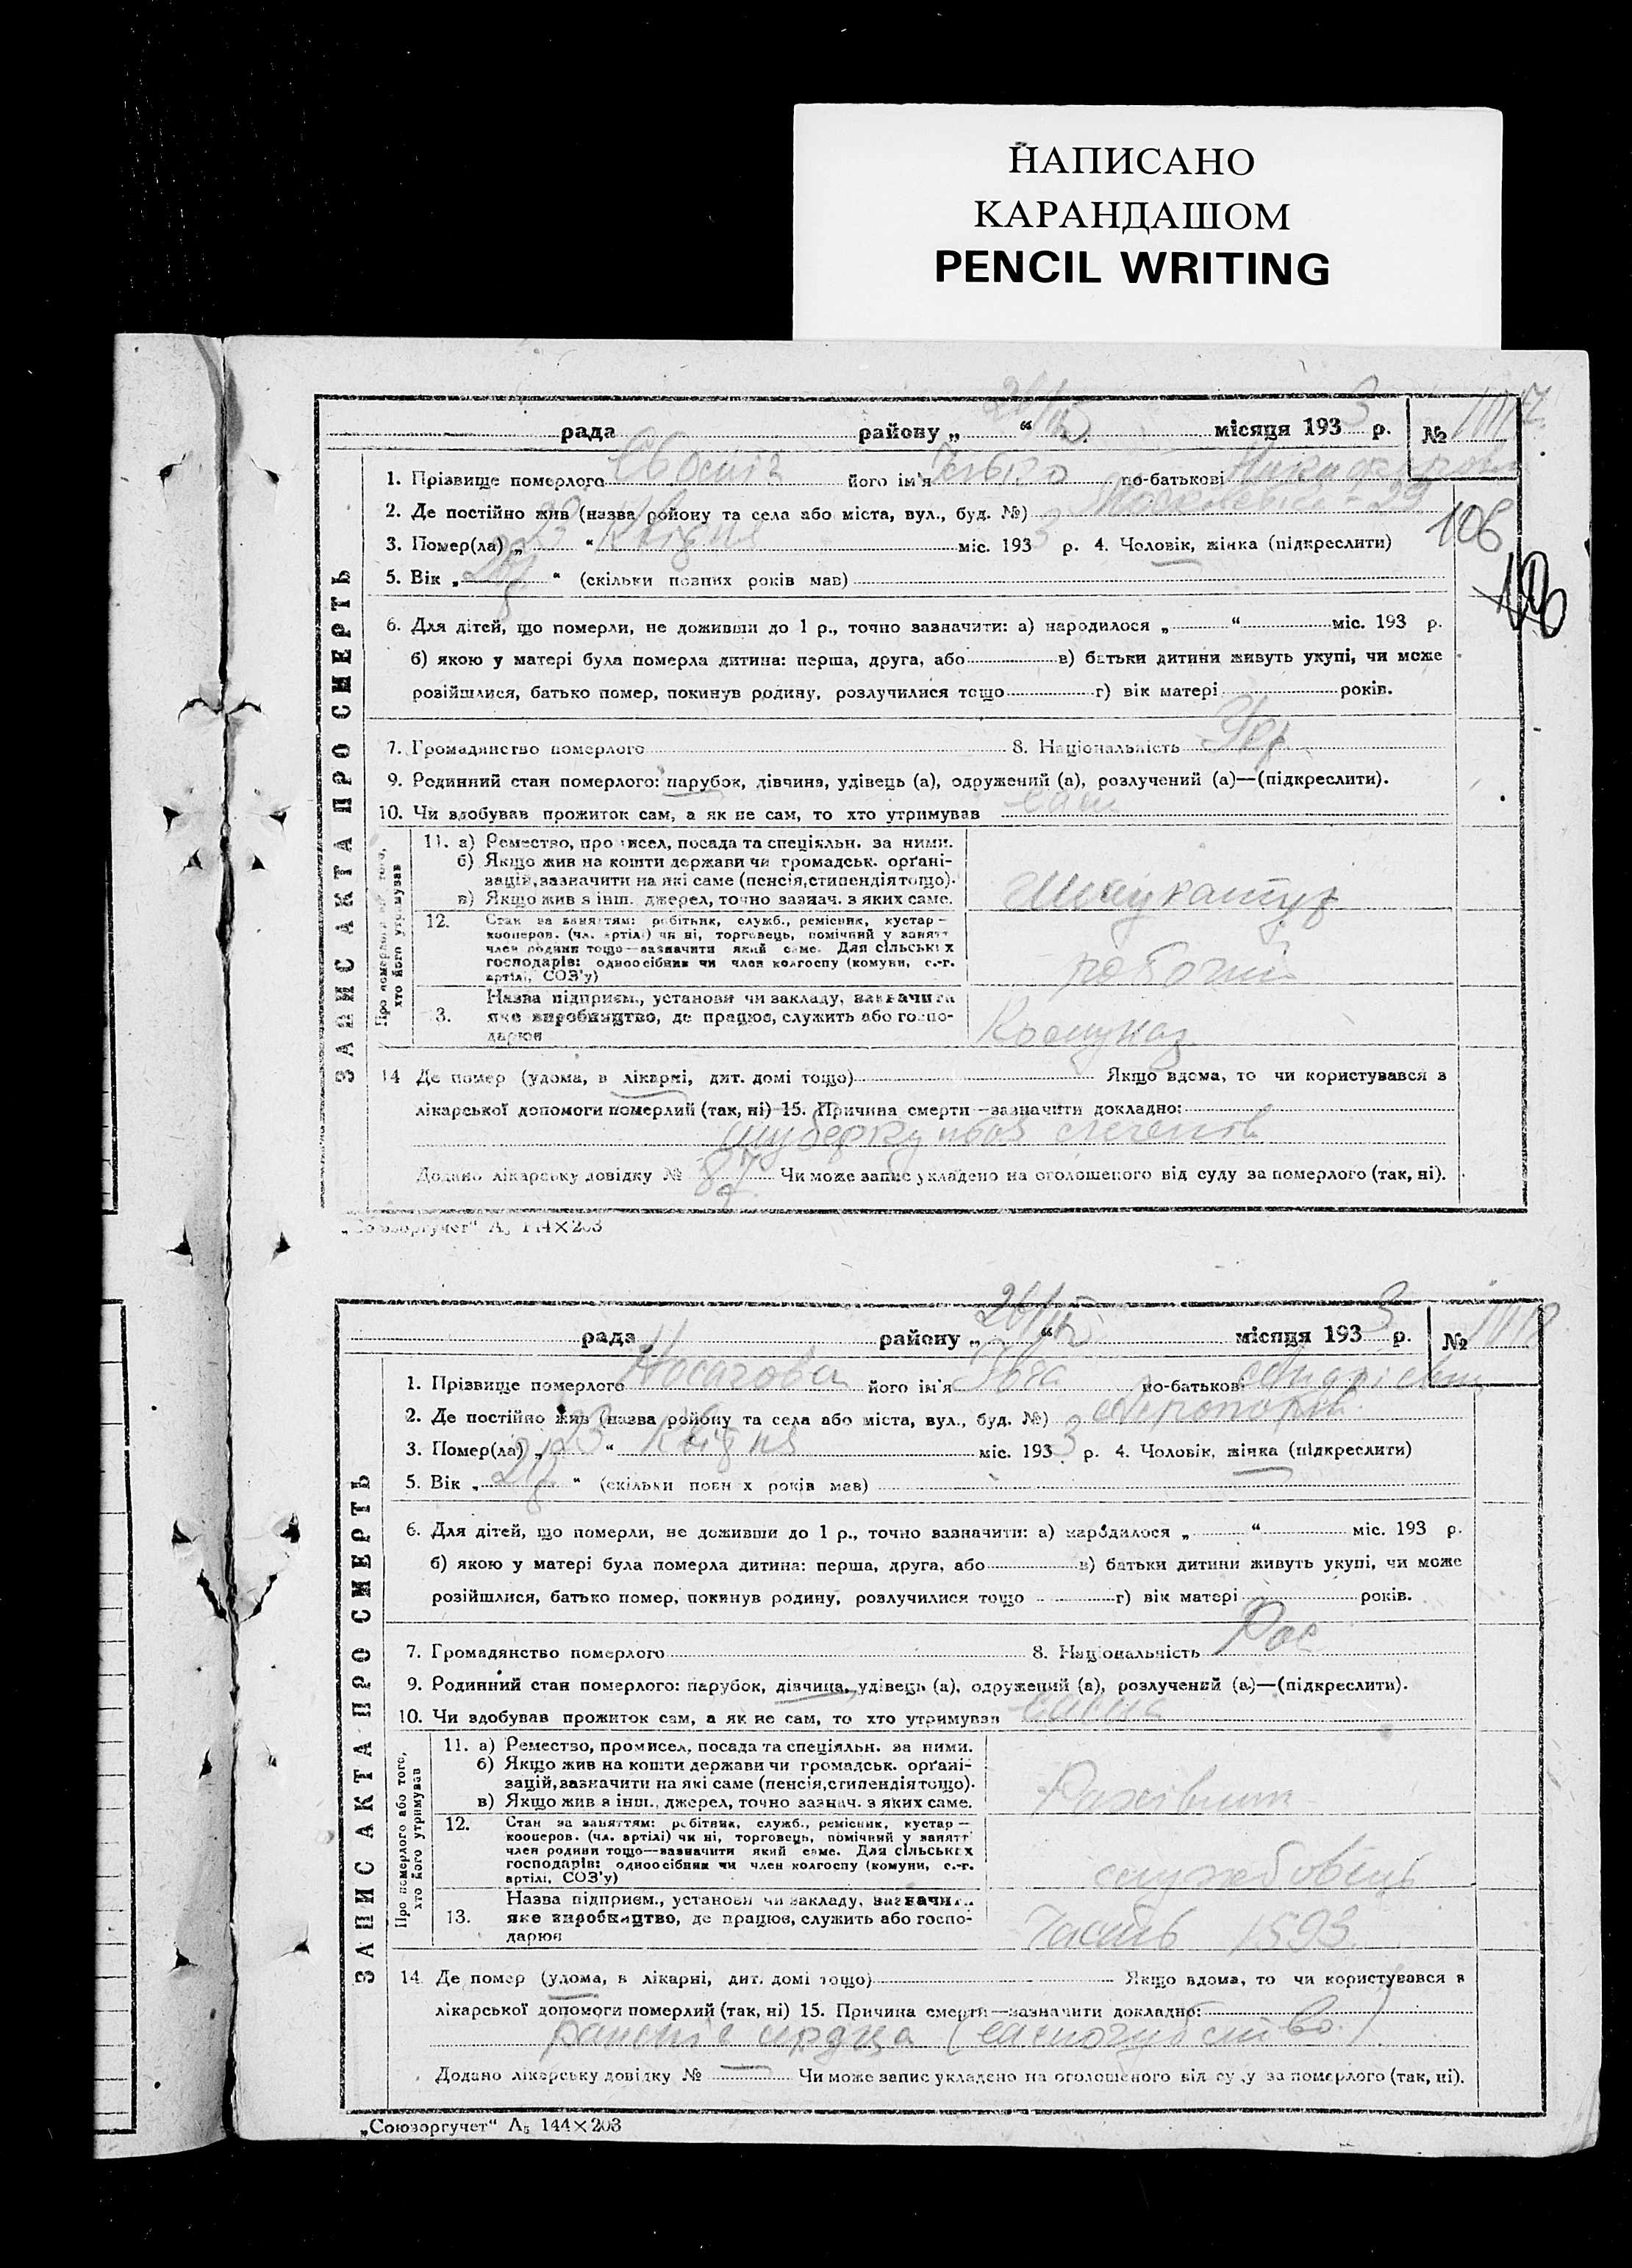 НАПИСАНО
КАРАНДАШОМ
PENCIL WRITING
ЗАПИС АКТА ПРО СМЕРТЬ
рада району „ 26/IV “ місяця 1933 р. № 1117
1. Прізвище померлого його ім'я по-батькові
2. Де постійно жив (назва району та села або міста, вул., буд. №) 29
106
3. Помер(ла) „ 23 “ Квітня міс. 1933 р. 4. Чоловік, жінка (підкреслити)
5. Вік „ “ (скільки повних років мав)
6. Для дітей, що померли, не доживши до 1 р., точно зазначити: а) народилося „ “ міс. 193 р.
б) якою у матері була померла дитина: перша, друга, або в) батьки дитини живуть укупі, чи може
розійшлися, батько помер, покинув родину, розлучилися тощо г) вік матері років.
7. Громадянство померлого 8. Національність Укр
9. Родинний стан померлого: парубок, дівчина, удівець (а), одружений (а), розлучений (а)—(підкреслити).
10. Чи здобував прожиток сам, а як не сам, то хто утримував сам
Про померлого або того, хто його утримував
11. а) Ремество, промисел, посада та спеціяльн. за ними.
б) Якщо жив на кошти держави чи громадськ. орґані-
зацій, зазначити на які саме (пенсія, стипендія тощо).
в) Якщо жив з інш. джерел, точно зазнач. з яких саме.
Штукатур
12. Стан за заняттям: робітник, служб., ремісник, кустар—
кооперов. (чл. артілі) чи ні, торговець, помічний у занятт
член родини тощо—зазначити який саме. Для сільських
господарів: одноосібник чи член колгоспу (комуни, с.-г.
артілі, СОЗ'у)
робочий
3. Назва підприєм., установи чи закладу, зазначити
яке виробництво, де працює, служить або госпо-
дарює
14 Де помер (удома, в лікарні, дит. домі тощо) Якщо вдома, то чи користувався з
лікарської допомоги померлий (так, ні) 15. Причина смерти—зазначити докладно:
туберкульоз легенів
Додано лікарську довідку № 87 Чи може запис укладено на оголошеного від суду за померлого (так, ні).
„Союзоргучет“ А₅ 144×203
ЗАПИС АКТА ПРО СМЕРТЬ
рада району „ 26/IV “ місяця 1933 р. № 1118
1. Прізвище померлого Носачова його ім'я по-батькові Андріевна
2. Де постійно жив (назва району та села або міста, вул., буд. №)
3. Помер(ла) „ 23 “ Квітня міс. 1933 р. 4. Чоловік, жінка (підкреслити)
5. Вік „ “ (скільки повних років мав)
6. Для дітей, що померли, не доживши до 1 р., точно зазначити: а) народилося „ “ міс. 193 р.
б) якою у матері була померла дитина: перша, друга, або в) батьки дитини живуть укупі, чи може
розійшлися, батько помер, покинув родину, розлучилися тощо г) вік матері років.
7. Громадянство померлого 8. Національність Рос
9. Родинний стан померлого: парубок, дівчина, удівець (а), одружений (а), розлучений (а)—(підкреслити).
10. Чи здобував прожиток сам, а як не сам, то хто утримував сама
Про померлого або того, хто його утримував
11. а) Ремество, промисел, посада та спеціяльн. за ними.
б) Якщо жив на кошти держави чи громадськ. орґані-
зацій, зазначити на які саме (пенсія, стипендія тощо).
в) Якщо жив з інш. джерел, точно зазнач. з яких саме.
12. Стан за заняттям: робітник, служб., ремісник, кустар—
кооперов. (чл. артілі) чи ні, торговець, помічний у занятт
член родини тощо—зазначити який саме. Для сільських
господарів: одноосібник чи член колгоспу (комуни, с.-г.
артілі, СОЗ'у)
службовець
13. Назва підприєм., установи чи закладу, зазначити
яке виробництво, де працює, служить або госпо-
дарює
Часть 1593
14 Де помер (удома, в лікарні, дит. домі тощо) Якщо вдома, то чи користувався з
лікарської допомоги померлий (так, ні) 15. Причина смерти—зазначити докладно:
ранение сердца (самогубство)
Додано лікарську довідку № — Чи може запис укладено на оголошеного від суду за померлого (так, ні).
„Союзоргучет“ А₅ 144×203